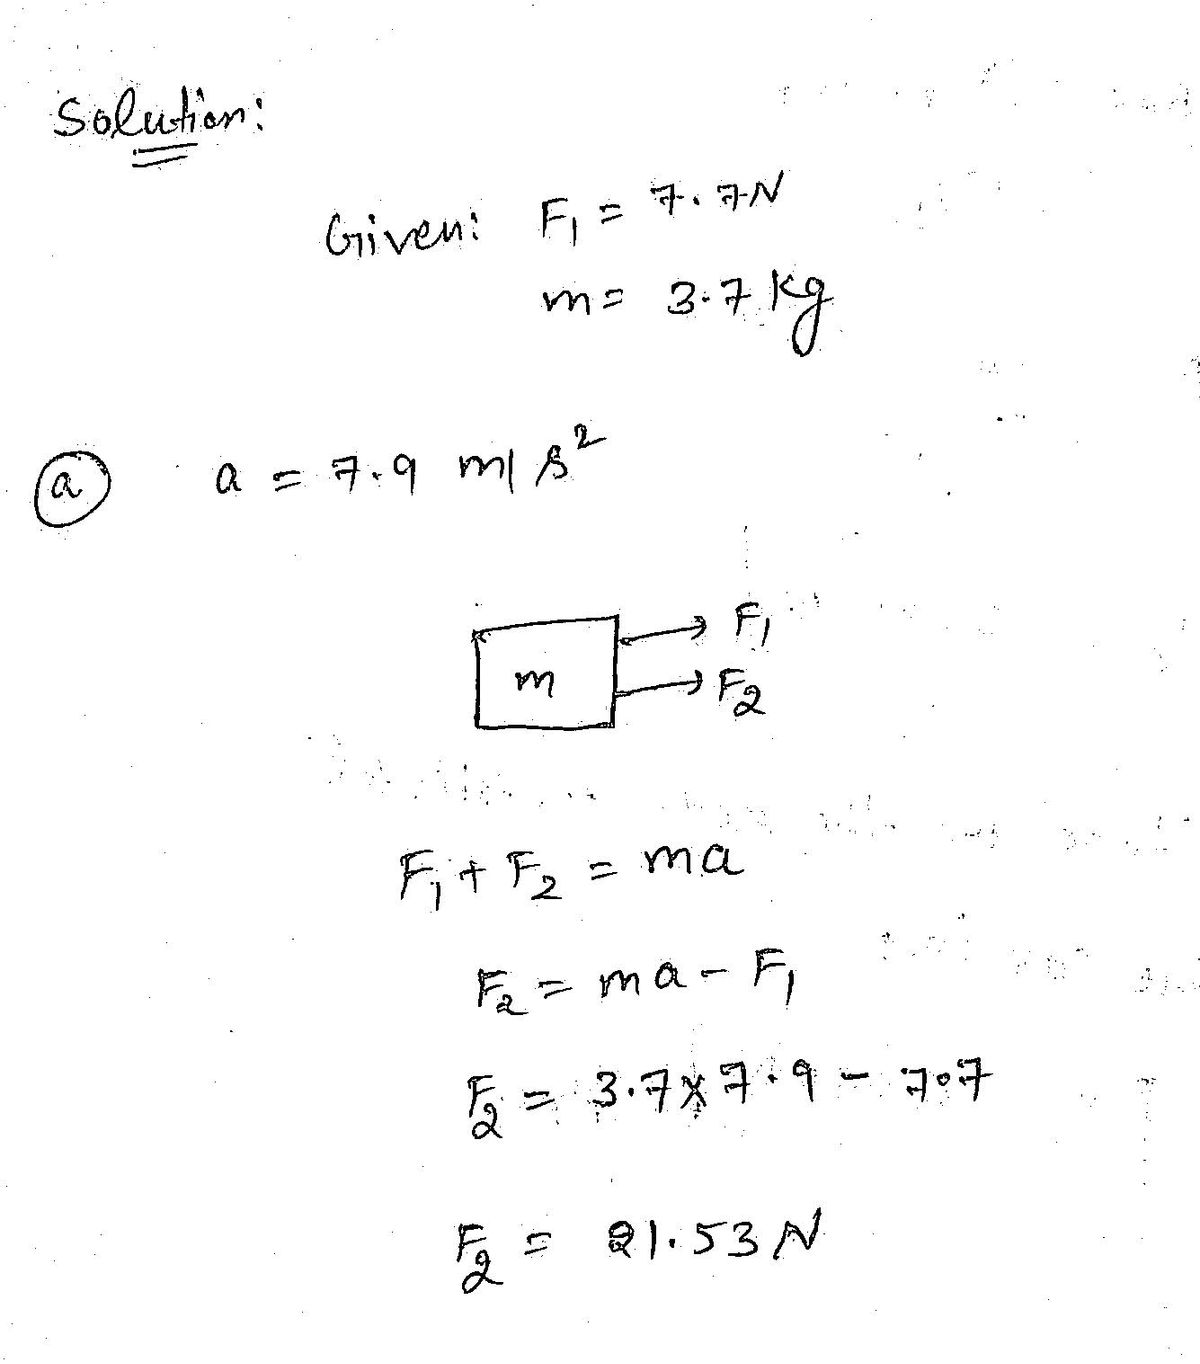 Solution:
Given: F₁ = 7.7N
m = 3.7 kg
(a) a = 7.9 m/s²
F₁
m
F₂
F₁ + F₂ = ma
F₂ = ma - F₁
F₂ = 3.7 × 7.9 - 7.7
F₂ = 21.53 N